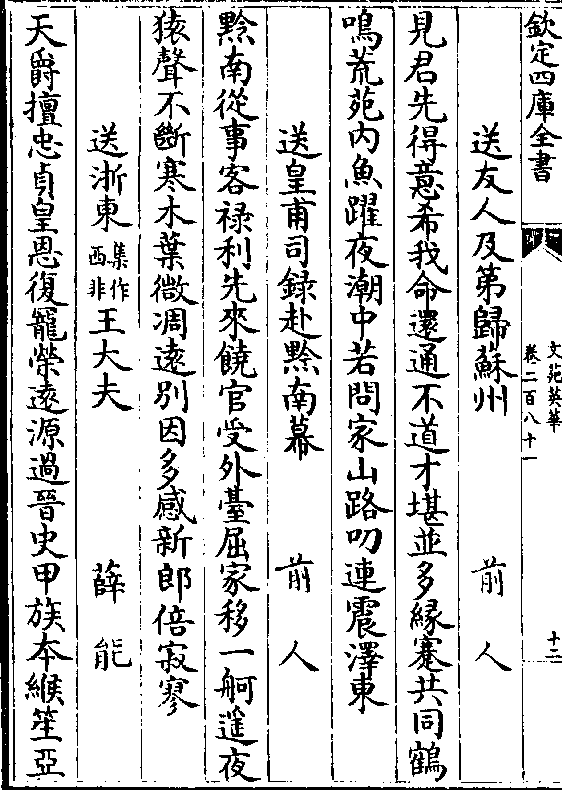 欽定四庫全書
文苑英華
卷二百八十一
十二
送友人及第歸蘇州 前人
見君先得意希我命還通不道才堪並多緣蹇共同鶴
鳴荒苑内魚躍夜潮中若問家山路叨連震澤東
送皇甫司録赴黔南幕 前人
黔南從事客禄利先來饒官受外臺屈家移一舸遥夜
猿聲不斷寒木葉微凋逺别因多感新郎倍寂寥
送浙東集作西非王大夫 薛能
天爵擅忠貞皇恩復寵榮逺源過晉史甲族本緱笙亞